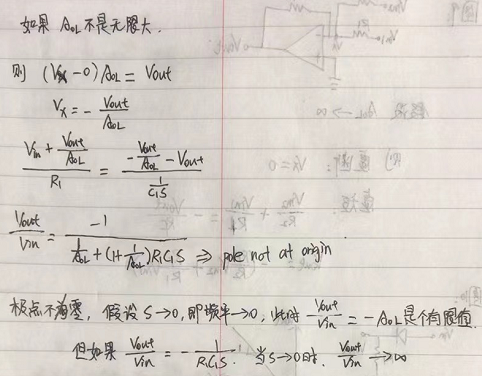 如果 AoL 不是无限大.
则 (Vx-0) AoL = Vout
Vx = - Vout/AoL
(Vin + Vout/AoL)/R1 = (-Vout/AoL - Vout)/(1/(C1S))
Vout/Vin = -1/(1/AoL + (1+1/AoL)R1C1S) ⇒ pole not at origin.
极点不为零, 假设 S→0, 即频率→0, 此时 Vout/Vin = -AoL 是个有限值.
但如果 Vout/Vin = - 1/(R1C1S). 当S→0时. Vout/Vin → ∞